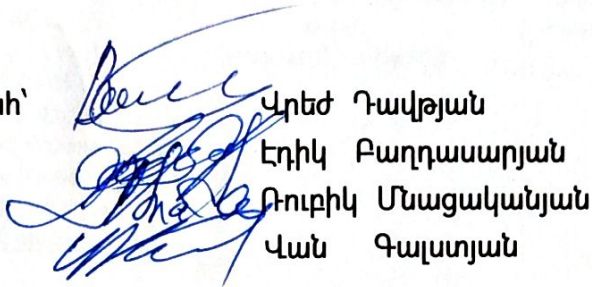 ահ՝ Վրեժ Դավթյան
Էդիկ Բաղդասարյան
Ռուբիկ Մնացականյան
Վան Գալստյան